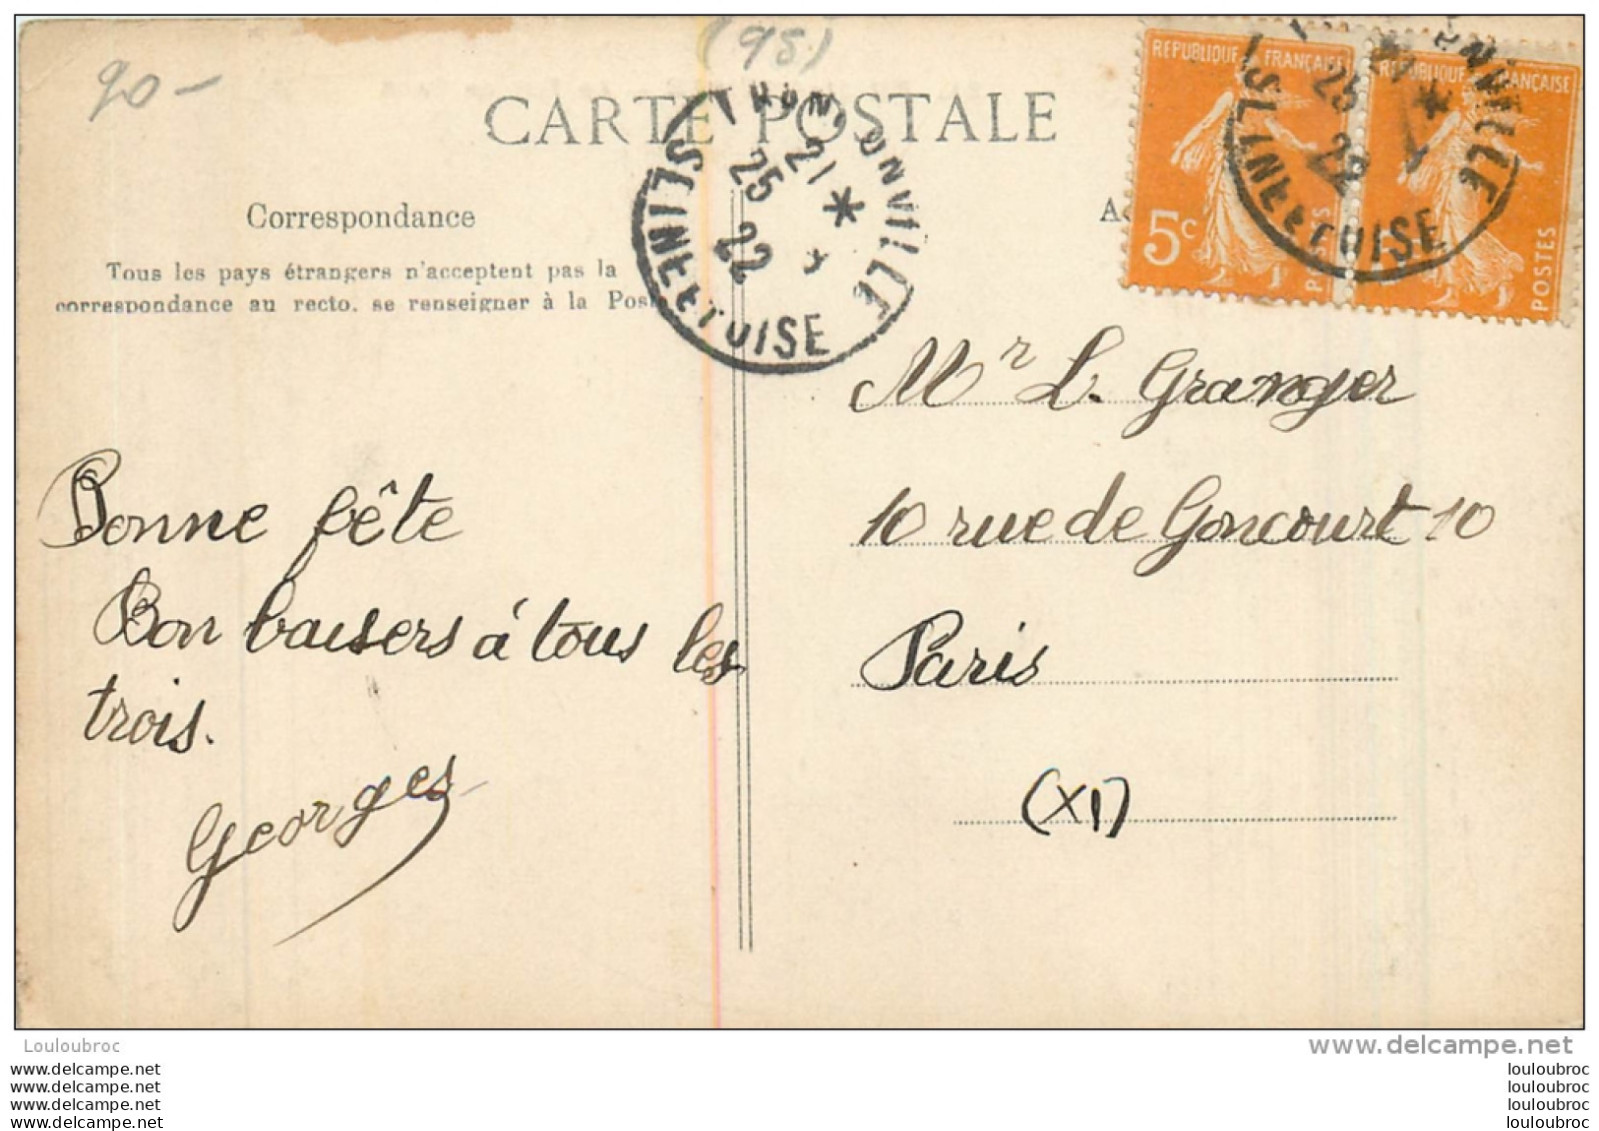 (95)
20-
CARTE POSTALE
THIONVILLE
21 *
25
22
SEINE ET OISE
REPUBLIQUE FRANÇAISE
5c
POSTES
REPUBLIQUE FRANÇAISE
POSTES
25
22
*
SEINE ET OISE
Correspondance
Tous les pays étrangers n'acceptent pas la
correspondance au recto. se renseigner à la Poste
Bonne fête
Bon baisers à tous les
trois.
Georges
Mr L. Granger
10 rue de Goncourt 10
Paris
(XI)
Louloubroc
www.delcampe.net
www.delcampe.net
www.delcampe.net
www.delcampe.net
www.delcampe.net
louloubroc
louloubroc
louloubroc
louloubroc